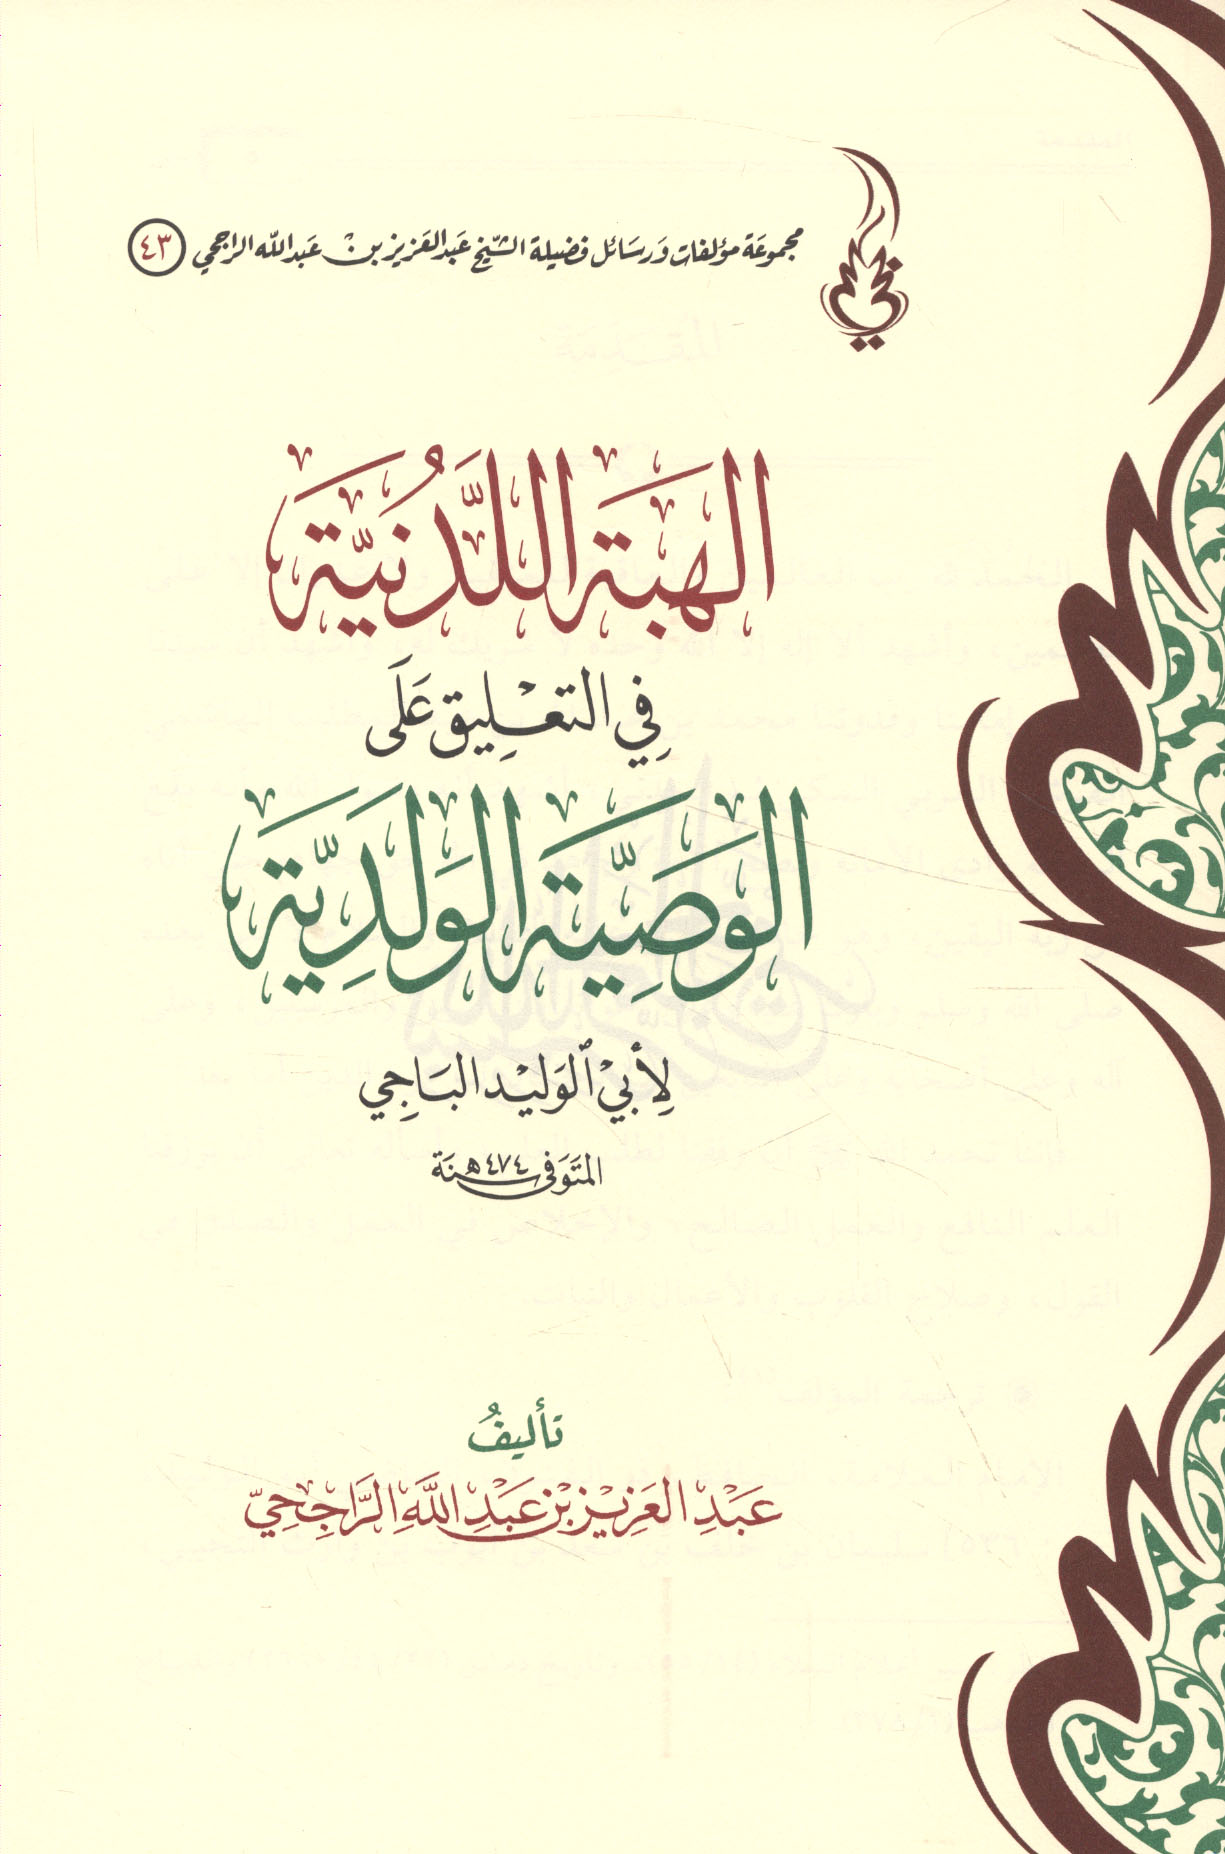 مجموعَة مؤلفات وَرسَائل فضيلة الشّيخ عَبد العَزيز بنْ عَبد اللّه الراجحي ٤٣
الهبَة اللَّدُنيَّة
فِي التعْلِيق عَلَى
الوَصِيَّة الوَلَدِيَّة
لِأَبيْ ٱلوَليْد البَاجِي
المتَوَفى سَنَة ٤٧٤هـ
تأليفُ
عَبْدِ العَزِيْز بْن عَبْدِ اللَّهِ الرَّاجِحِيّ